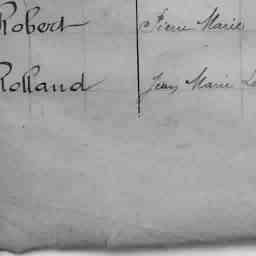 Robert Pierre Marie
Rolland Jean Marie